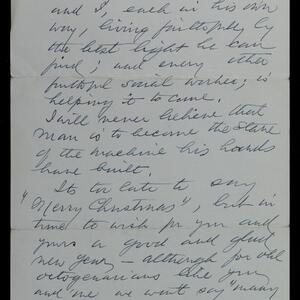 and I, each in his own
way, living faithfully by
the best light he can
find; and every other
faithful social worker, is
helping it to come.
I will never believe that
man is to become the slave
of the machine his hands
have built.
Its too late to say
"Merry Christmas", but in
time to wish for you and
yours a good and glad
new year, – although for old
octogenarians like you
and me we won't say "many